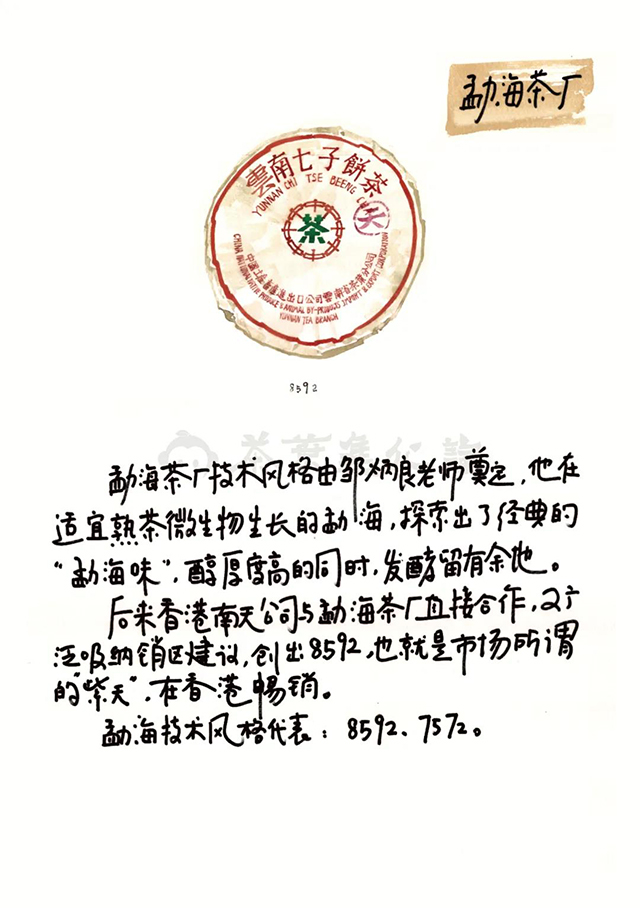 勐海茶厂
雲南七子餅茶
YUNNAN CHI TSE BEENG C
天
茶
中國土產畜產進出口公司雲南省茶葉分公司
CHINA NATIONAL NATIVE PRODUCE & ANIMAL BY-PRODUCTS IMPORT & EXPORT CORPORATION
YUNNAN TEA BRANCH
8592
勐海茶厂技术风格由邹炳良老师奠定，他在
适宜熟茶微生物生长的勐海，探索出了经典的
“勐海味”，醇厚度高的同时，发酵留有余地。
后来香港南天公司与勐海茶厂直接合作，又广
泛吸纳销区建议，创出8592，也就是市场所谓
的“紫天”，在香港畅销。
勐海技术风格代表：8592、7572。